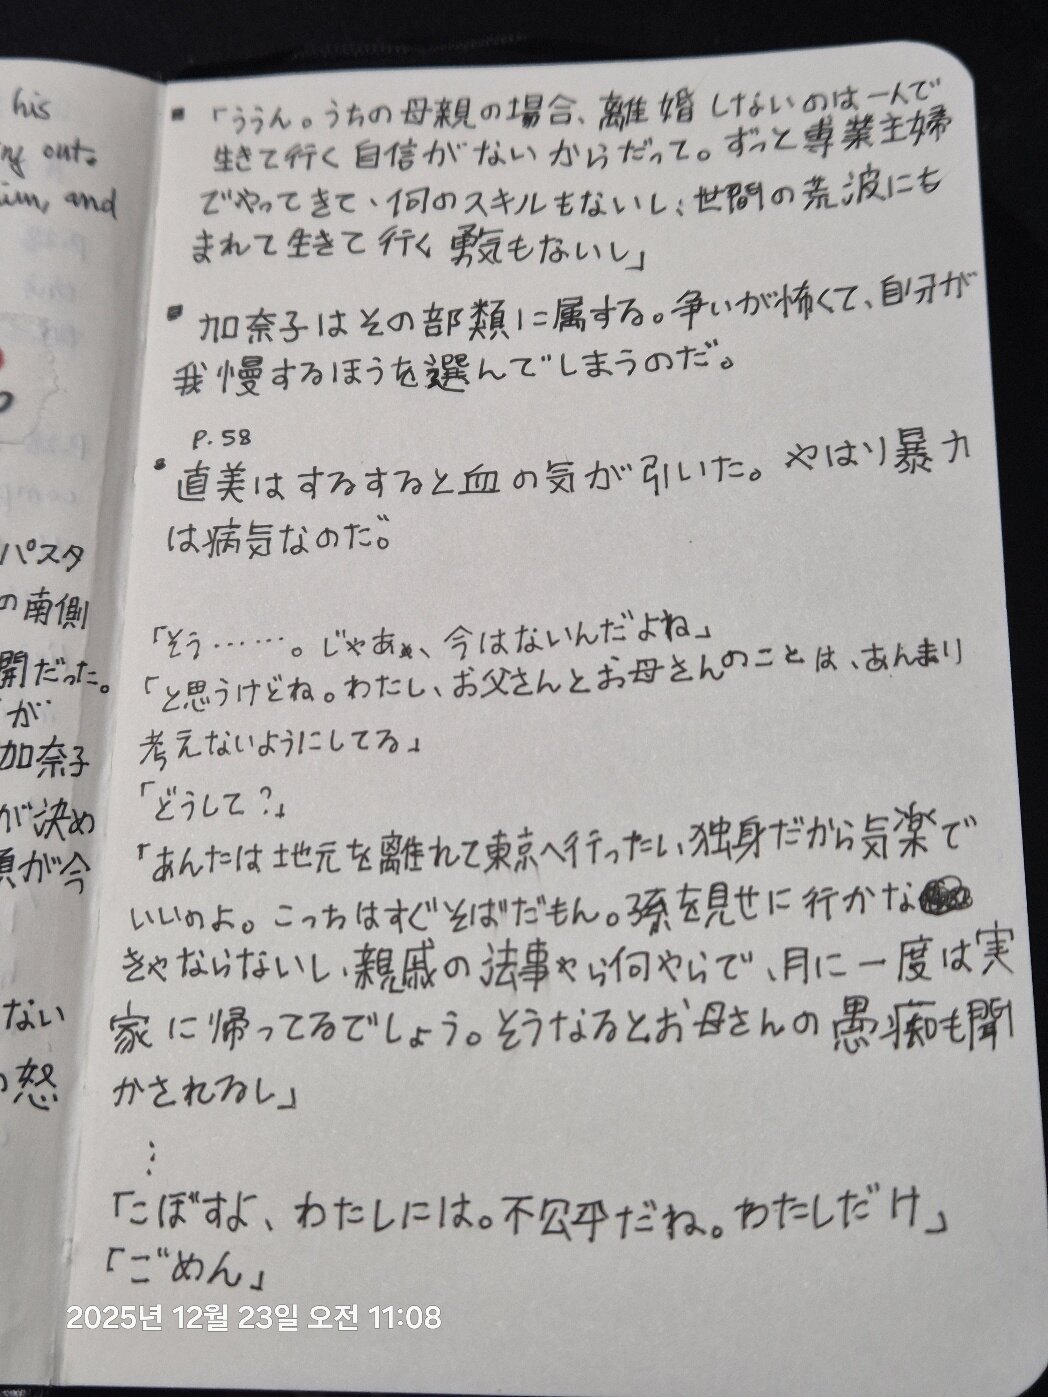 his
out.
and
パスタ
の南側
開だった。
が
加奈子
が決め
が今
ない
怒
「ううん。うちの母親の場合、離婚しないのは一人で
生きて行く自信がないからだって。ずっと専業主婦
でやってきて、何のスキルもないし、世間の荒波にも
まれて生きて行く勇気もないし」
加奈子はその部類に属する。争いが怖くて、自分が
我慢するほうを選んでしまうのだ。
P.58
直美はするすると血の気が引いた。やはり暴力
は病気なのだ。
「そう……。じゃあ、今はないんだよね」
「と思うけどね。わたし、お父さんとお母さんのことは、あんまり
考えないようにしてる」
「どうして?」
「あんたは地元を離れて東京へ行ったし、独身だから気楽で
いいのよ。こっちはすぐそばだもん。孫を見せに行かな
きゃならないし、親戚の法事やら何やらで、月に一度は実
家に帰ってるでしょう。そうなるとお母さんの愚痴も聞
かされるし」
⋮
「こぼすよ、わたしには。不公平だね。わたしだけ」
「ごめん」
2025년 12월 23일 오전 11:08